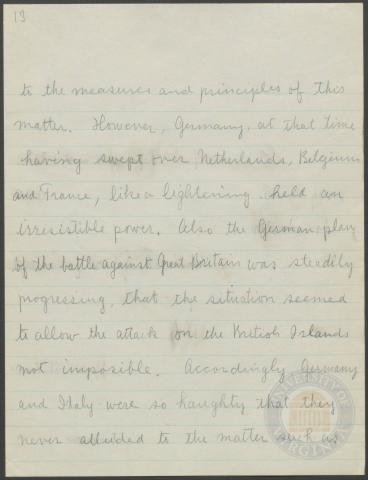 13
to the measures and principles of this
matter. However, Germany, at that time
having swept over Netherlands, Belgium
and France, like a lightening held an
irresistible power. Also the German plan
of the battle against Great Britain was steadily
progressing, that the situation seemed
to allow the attack on the British Islands
not imposible. Accordingly Germany
and Italy were so haughty that they
never alluded to the matter such as
UNIVERSITY OF VIRGINIA